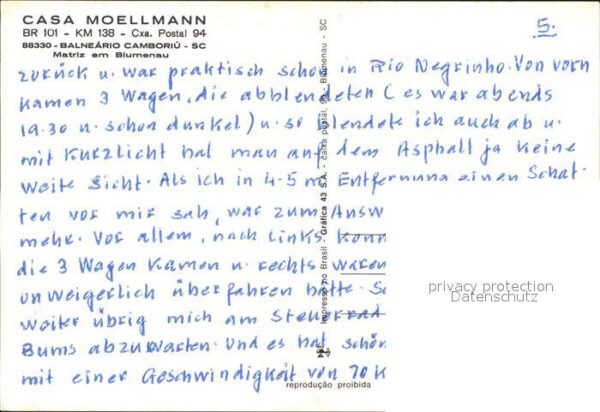 CASA MOELLMANN
BR 101 - KM 138 - Cxa. Postal 94
88330 - BALNEÁRIO CAMBORIÚ - SC
Matriz em Blumenau
5.
zurück u. war praktisch schon in Rio Negrinho. Von vorn
kamen 3 Wagen, die abblendeten (es war abends
19.30 u. schon dunkel) u. so blendete ich auch ab u.
mit Kurzlicht hat man auf dem Asphalt ja keine
weite Sicht. Als ich in 4-5 m Entfernung einen Schat-
ten vor mir sah, war zum Ausw
mehr. Vor allem, nach links konn
die 3 Wagen kamen u. rechts waren
unweigerlich überfahren hätte. So
weiter übrig mich am Steuerrad
Bums abzuwarten. Und es hat schön
mit einer Geschwindigkeit von 70 K
Impresso no Brasil - Gráfica 43 S.A. - caixa postal, Blumenau - SC
reprodução proibida
privacy protection
Datenschutz